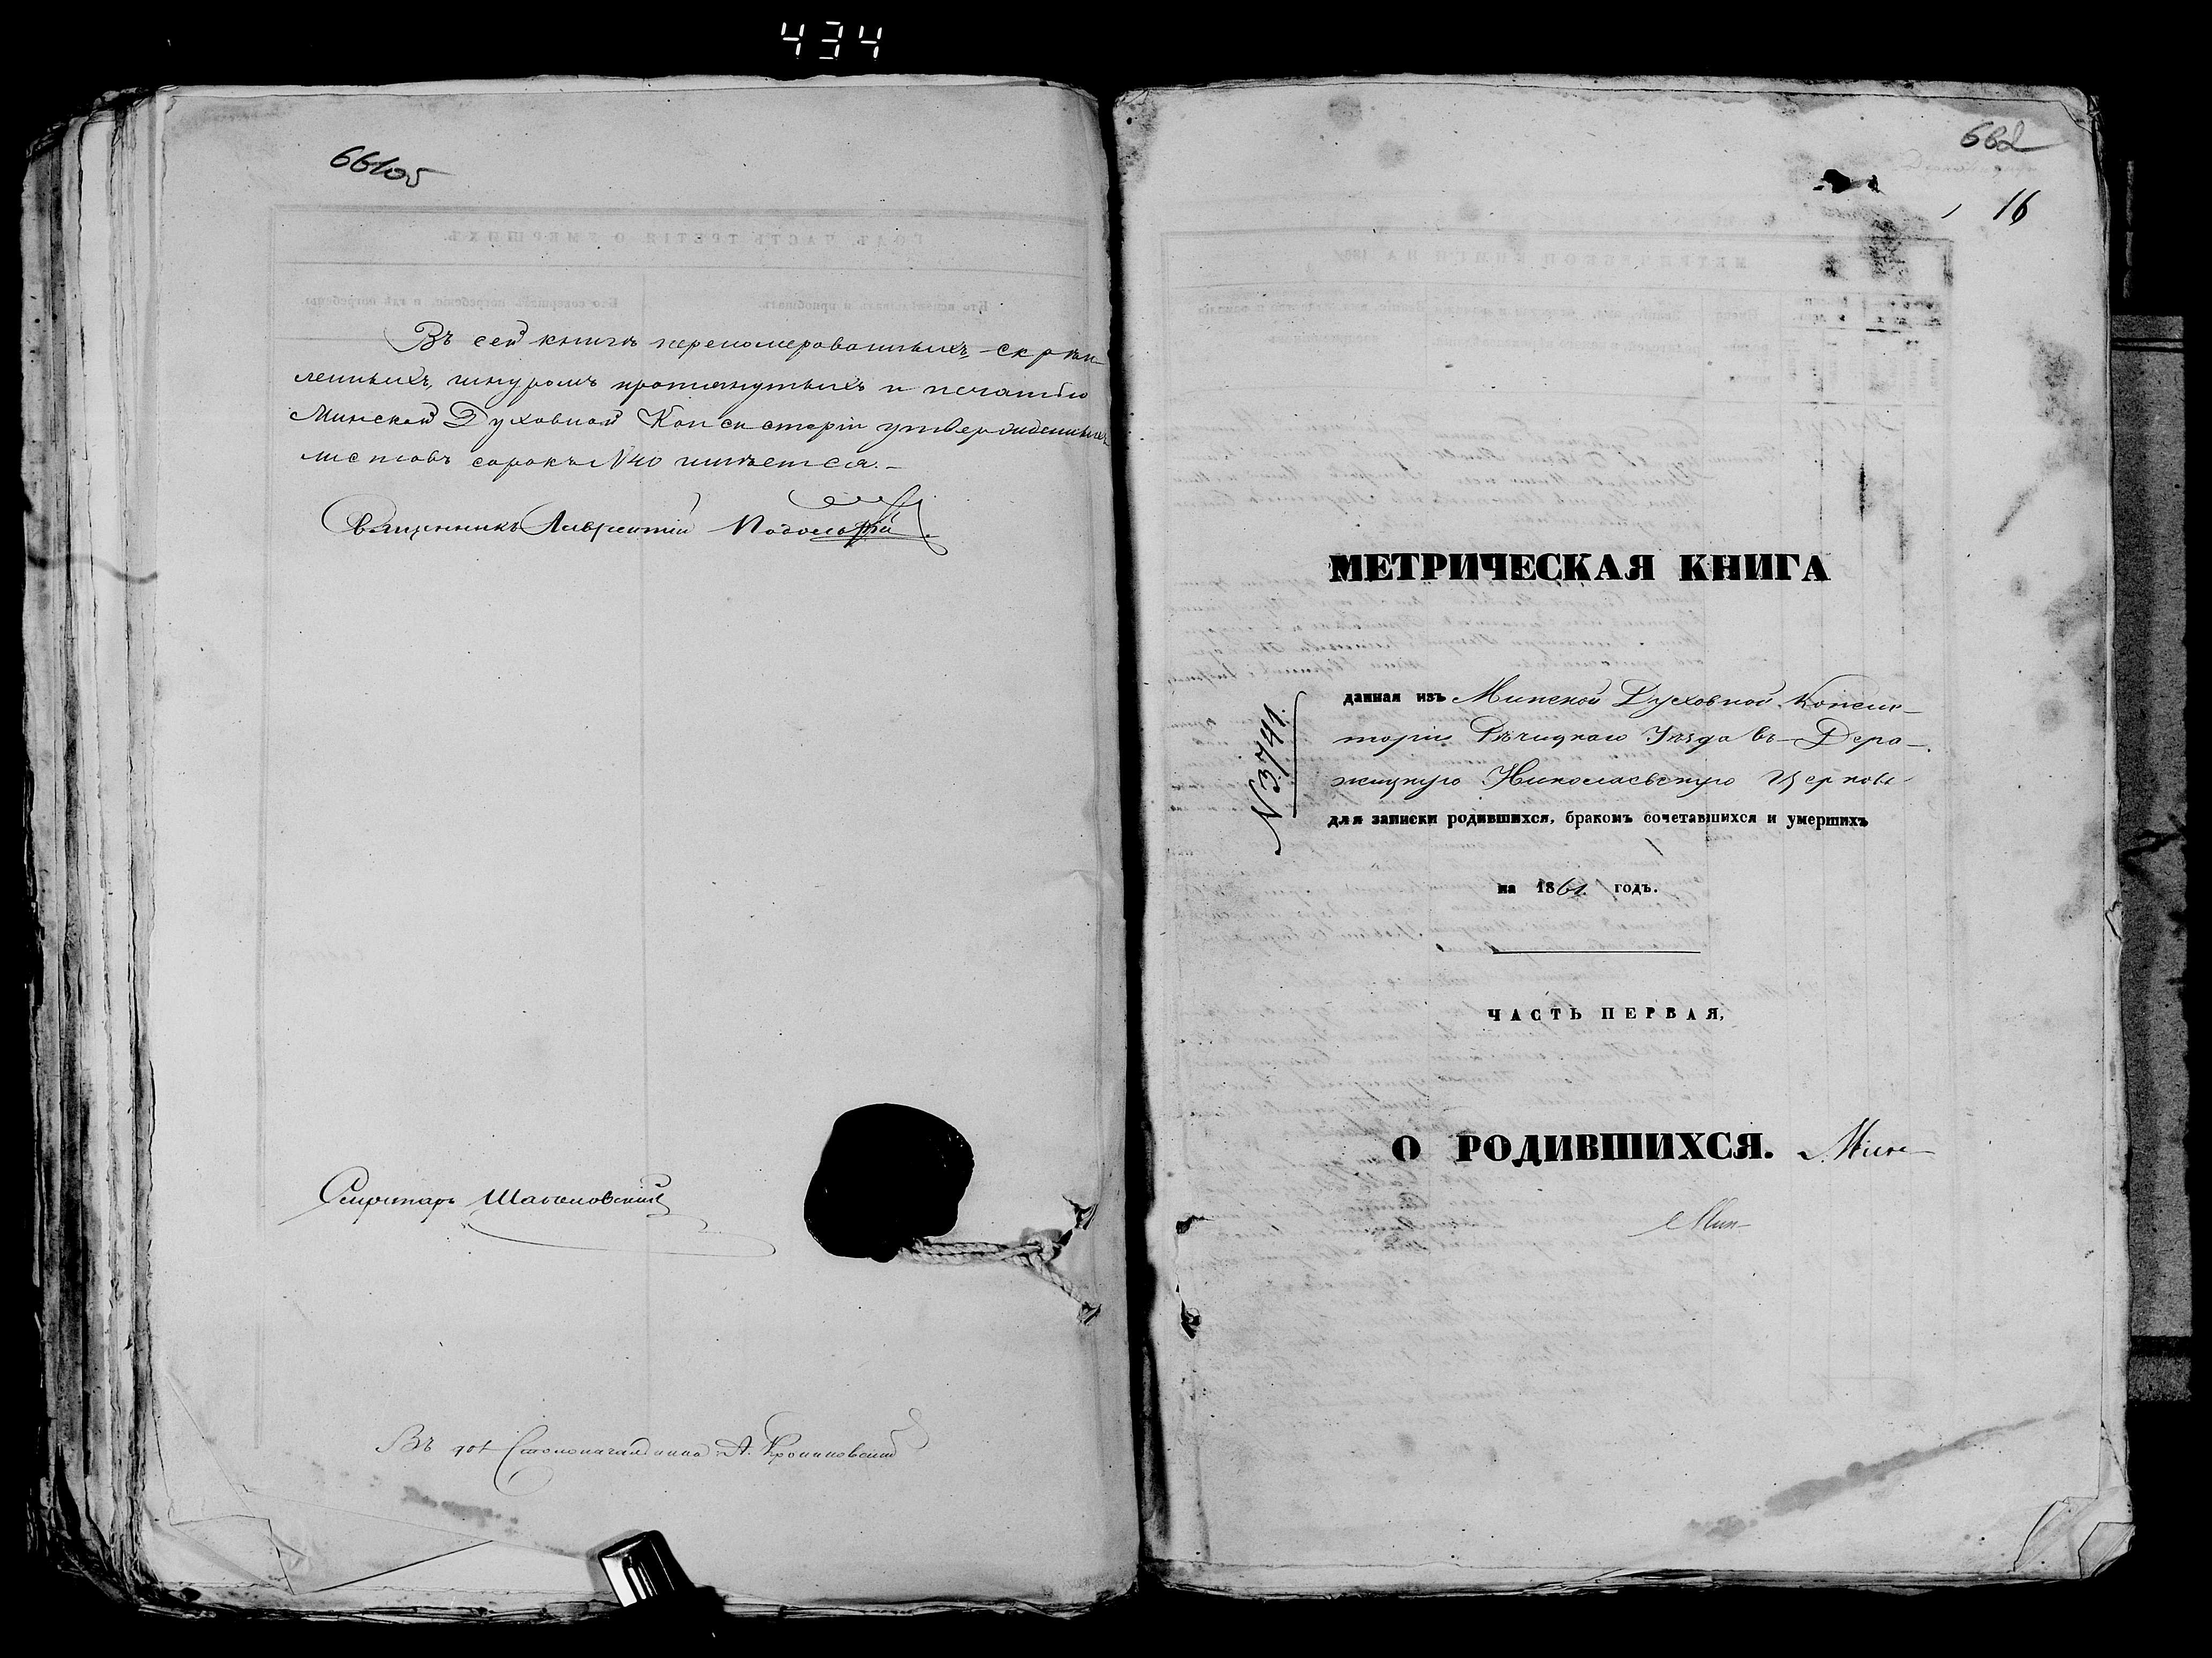 434
661об
Въ сей книгѣ переномерованныхъ, скрѣп-
ленныхъ, шнуромъ протянутыхъ и печатью
Минской Духовной Консисторіи утвержденныхъ
листовъ сорокъ N40 имѣется.
Священникъ Лаврентій
Секретарь
Въ дол. Столоначальника А.
662
16
МЕТРИЧЕСКАЯ КНИГА
N 3741.
данная изъ Минской Духовной Консис-
торіи Рѣчицкаго Уѣзда въ Дера-
жицкую Николаевскую Церковь
для записки родившихся, бракомъ сочетавшихся и умершихъ
на 1861 годъ.
ЧАСТЬ ПЕРВАЯ,
О РОДИВШИХСЯ. Мин
Мин